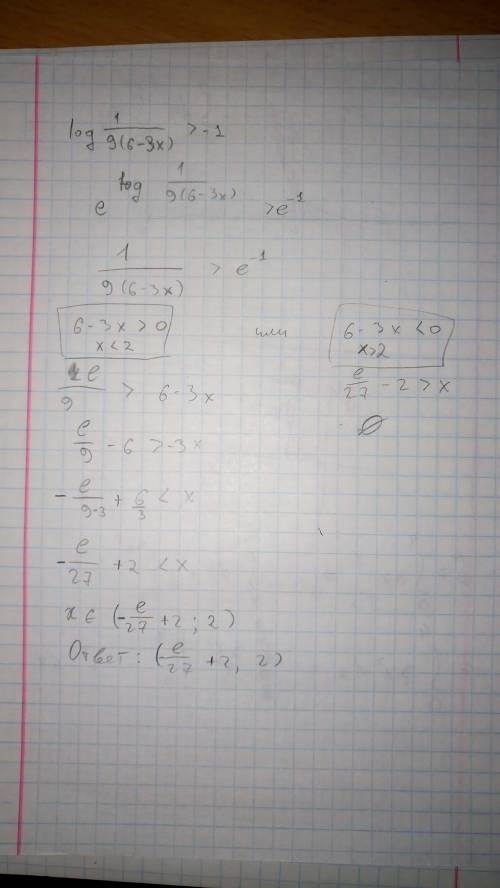 log 1/(9(6-3x)) > -1
e^(log 1/(9(6-3x))) > e^-1
1/(9(6-3x)) > e^-1
6-3x > 0
x < 2
или
6-3x < 0
x > 2
e/9 > 6-3x
e/27 - 2 > x
e/9 - 6 > -3x
∅
-e/(9·3) + 6/3 < x
-e/27 + 2 < x
x ∈ (-e/27 + 2; 2)
Ответ: (-e/27 + 2, 2)